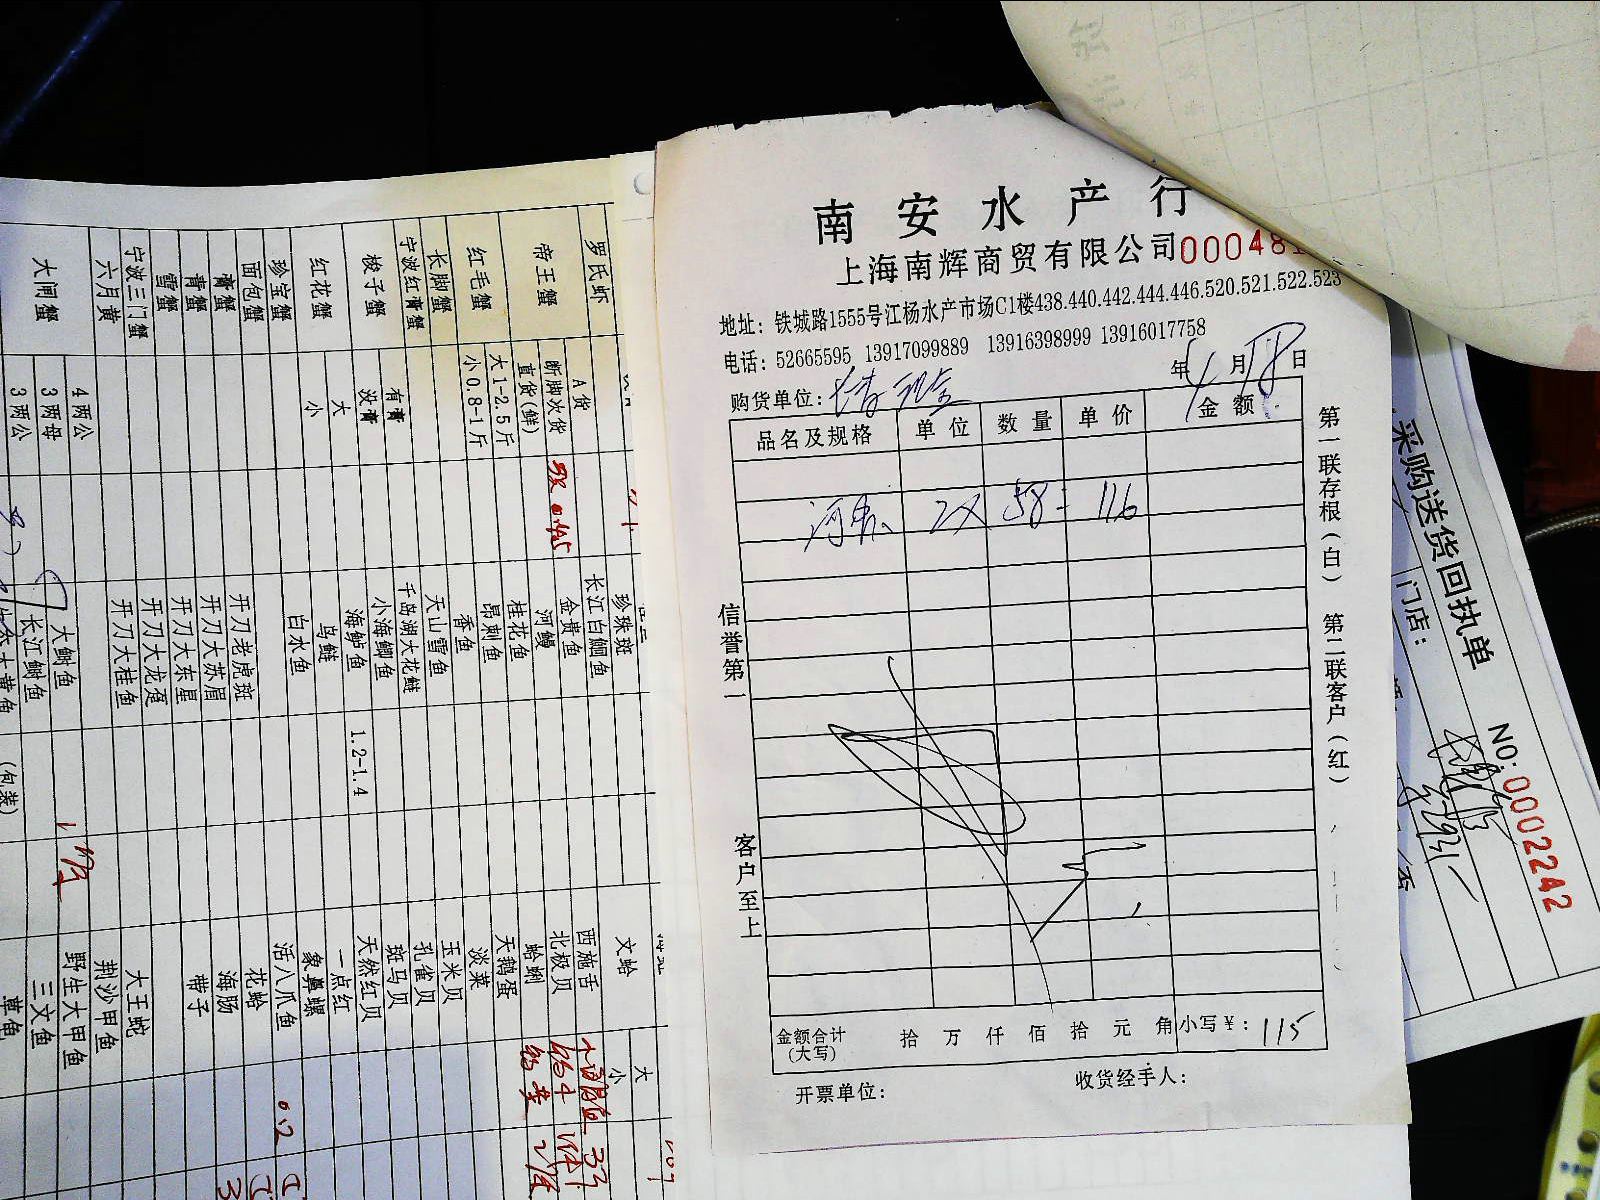 南安水产行
上海南辉商贸有限公司 00048
地址：铁城路1555号江杨水产市场C1楼438.440.442.444.446.520.521.522.523
电话：52665595 13917099889 13916398999 13916017758
年 月 18 日
购货单位：
品名及规格 单位 数量 单价 金额
58 = 116
金额合计(大写) 拾 万 仟 佰 拾 元 角 小写￥：115
开票单位： 收货经手人：
信誉第一 客户至上
第一联存根（白） 第二联客户（红）
采购送货回执单
门店：
NO: 0002242
罗氏虾
帝王蟹
A货
断脚次货
直货(鲜)
红毛蟹
大1-2.5斤
小0.8-1斤
长脚蟹
宁波红膏蟹
梭子蟹
有膏
没膏
红花蟹
大
小
珍宝蟹
面包蟹
膏蟹
青蟹
雪蟹
宁波三门蟹
六月黄
大闸蟹
4两公
3两母
3两公
珍珠斑
长江白鮰鱼
金贵鱼
河鳗
桂花鱼
昂刺鱼
香鱼
天山雪鱼
千岛湖大花鲢
小海鲫鱼
海鲈鱼
1.2-1.4
鸟鲢
白水鱼
开刀老虎斑
开刀大苏眉
开刀大东星
开刀大龙趸
开刀大桂鱼
大鲥鱼
长江鲥鱼
大黄鱼
(包装)
文蛤
大
小
西施舌
北极贝
蛤蜊
天鹅蛋
淡菜
玉米贝
孔雀贝
斑马贝
天然红贝
一点红
象鼻螺
活八爪鱼
0.2
花蛤
海肠
带子
大王蛇
荆沙甲鱼
野生大甲鱼
三文鱼
草鱼